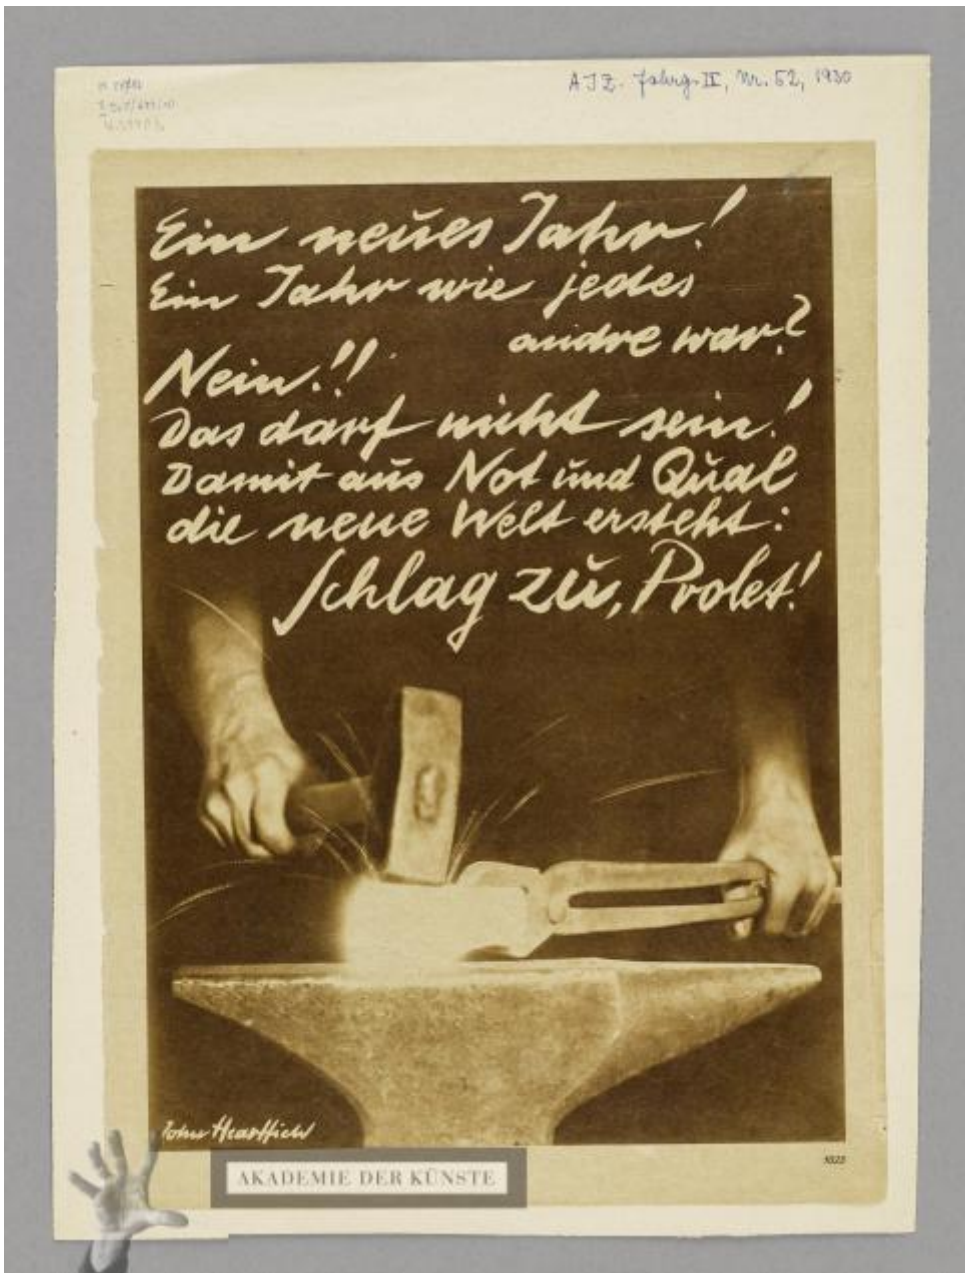 AJZ. Jahrg. IX, Nr. 52, 1930
Ein neues Jahr!
Ein Jahr wie jedes
andre war?
Nein!!
Das darf nicht sein!
Damit aus Not und Qual
die neue Welt ersteht:
Schlag zu, Prolet!
John Heartfield
1023
AKADEMIE DER KÜNSTE